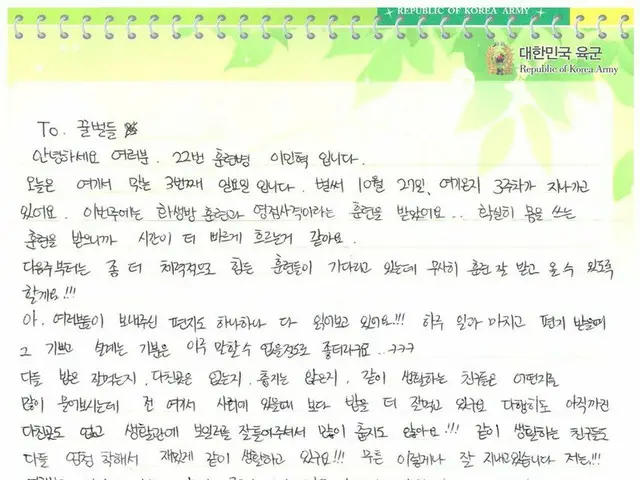 REPUBLIC OF KOREA ARMY
대한민국 육군
Republic of Korea Army
To. 꿀벌들
안녕하세요 여러분. 22번 훈련병 이민혁 입니다.
오늘은 여기서 맞는 3번째 일요일 입니다. 벌써 10월 27일, 여기온지 3주차가 지나가고
있어요. 이번주에는 화생방 훈련과 영점사격이라는 훈련을 받았어요.. 확실히 몸을 쓰는
훈련을 받으니까 시간이 더 빠르게 흐르는거 같아요.
다음주부터는 좀 더 체력적으로 힘든 훈련들이 기다리고 있는데 무사히 훈련 잘 받고 올 수 있도록
할게요!!!
아. 여러분들이 보내주신 편지도 하나하나 다 읽어보고 있어요!!! 하루 일과 마치고 편지 받을때
그 기쁘고 설레는 기분은 이루 말할 수 없을정도로 좋더라구요..ㅋㅋㅋ
다들 밥은 잘먹는지, 다친곳은 없는지, 춥지는 않은지, 같이 생활하는 친구들은 어떤지를
많이 물어보시는데 전 여기서 사회에 있을때 보다 밥을 더 잘먹고 있구요 다행히도 아직까진
다친곳도 없고 생활관에 보일러를 잘틀어주셔서 많이 춥지도 않아요!!! 같이 생활하는 친구들도
다들 엄청 착해서 재밌게 같이 생활하고 있구요!!! 무튼 이렇게나 잘 지내고있습니다 저는!!!